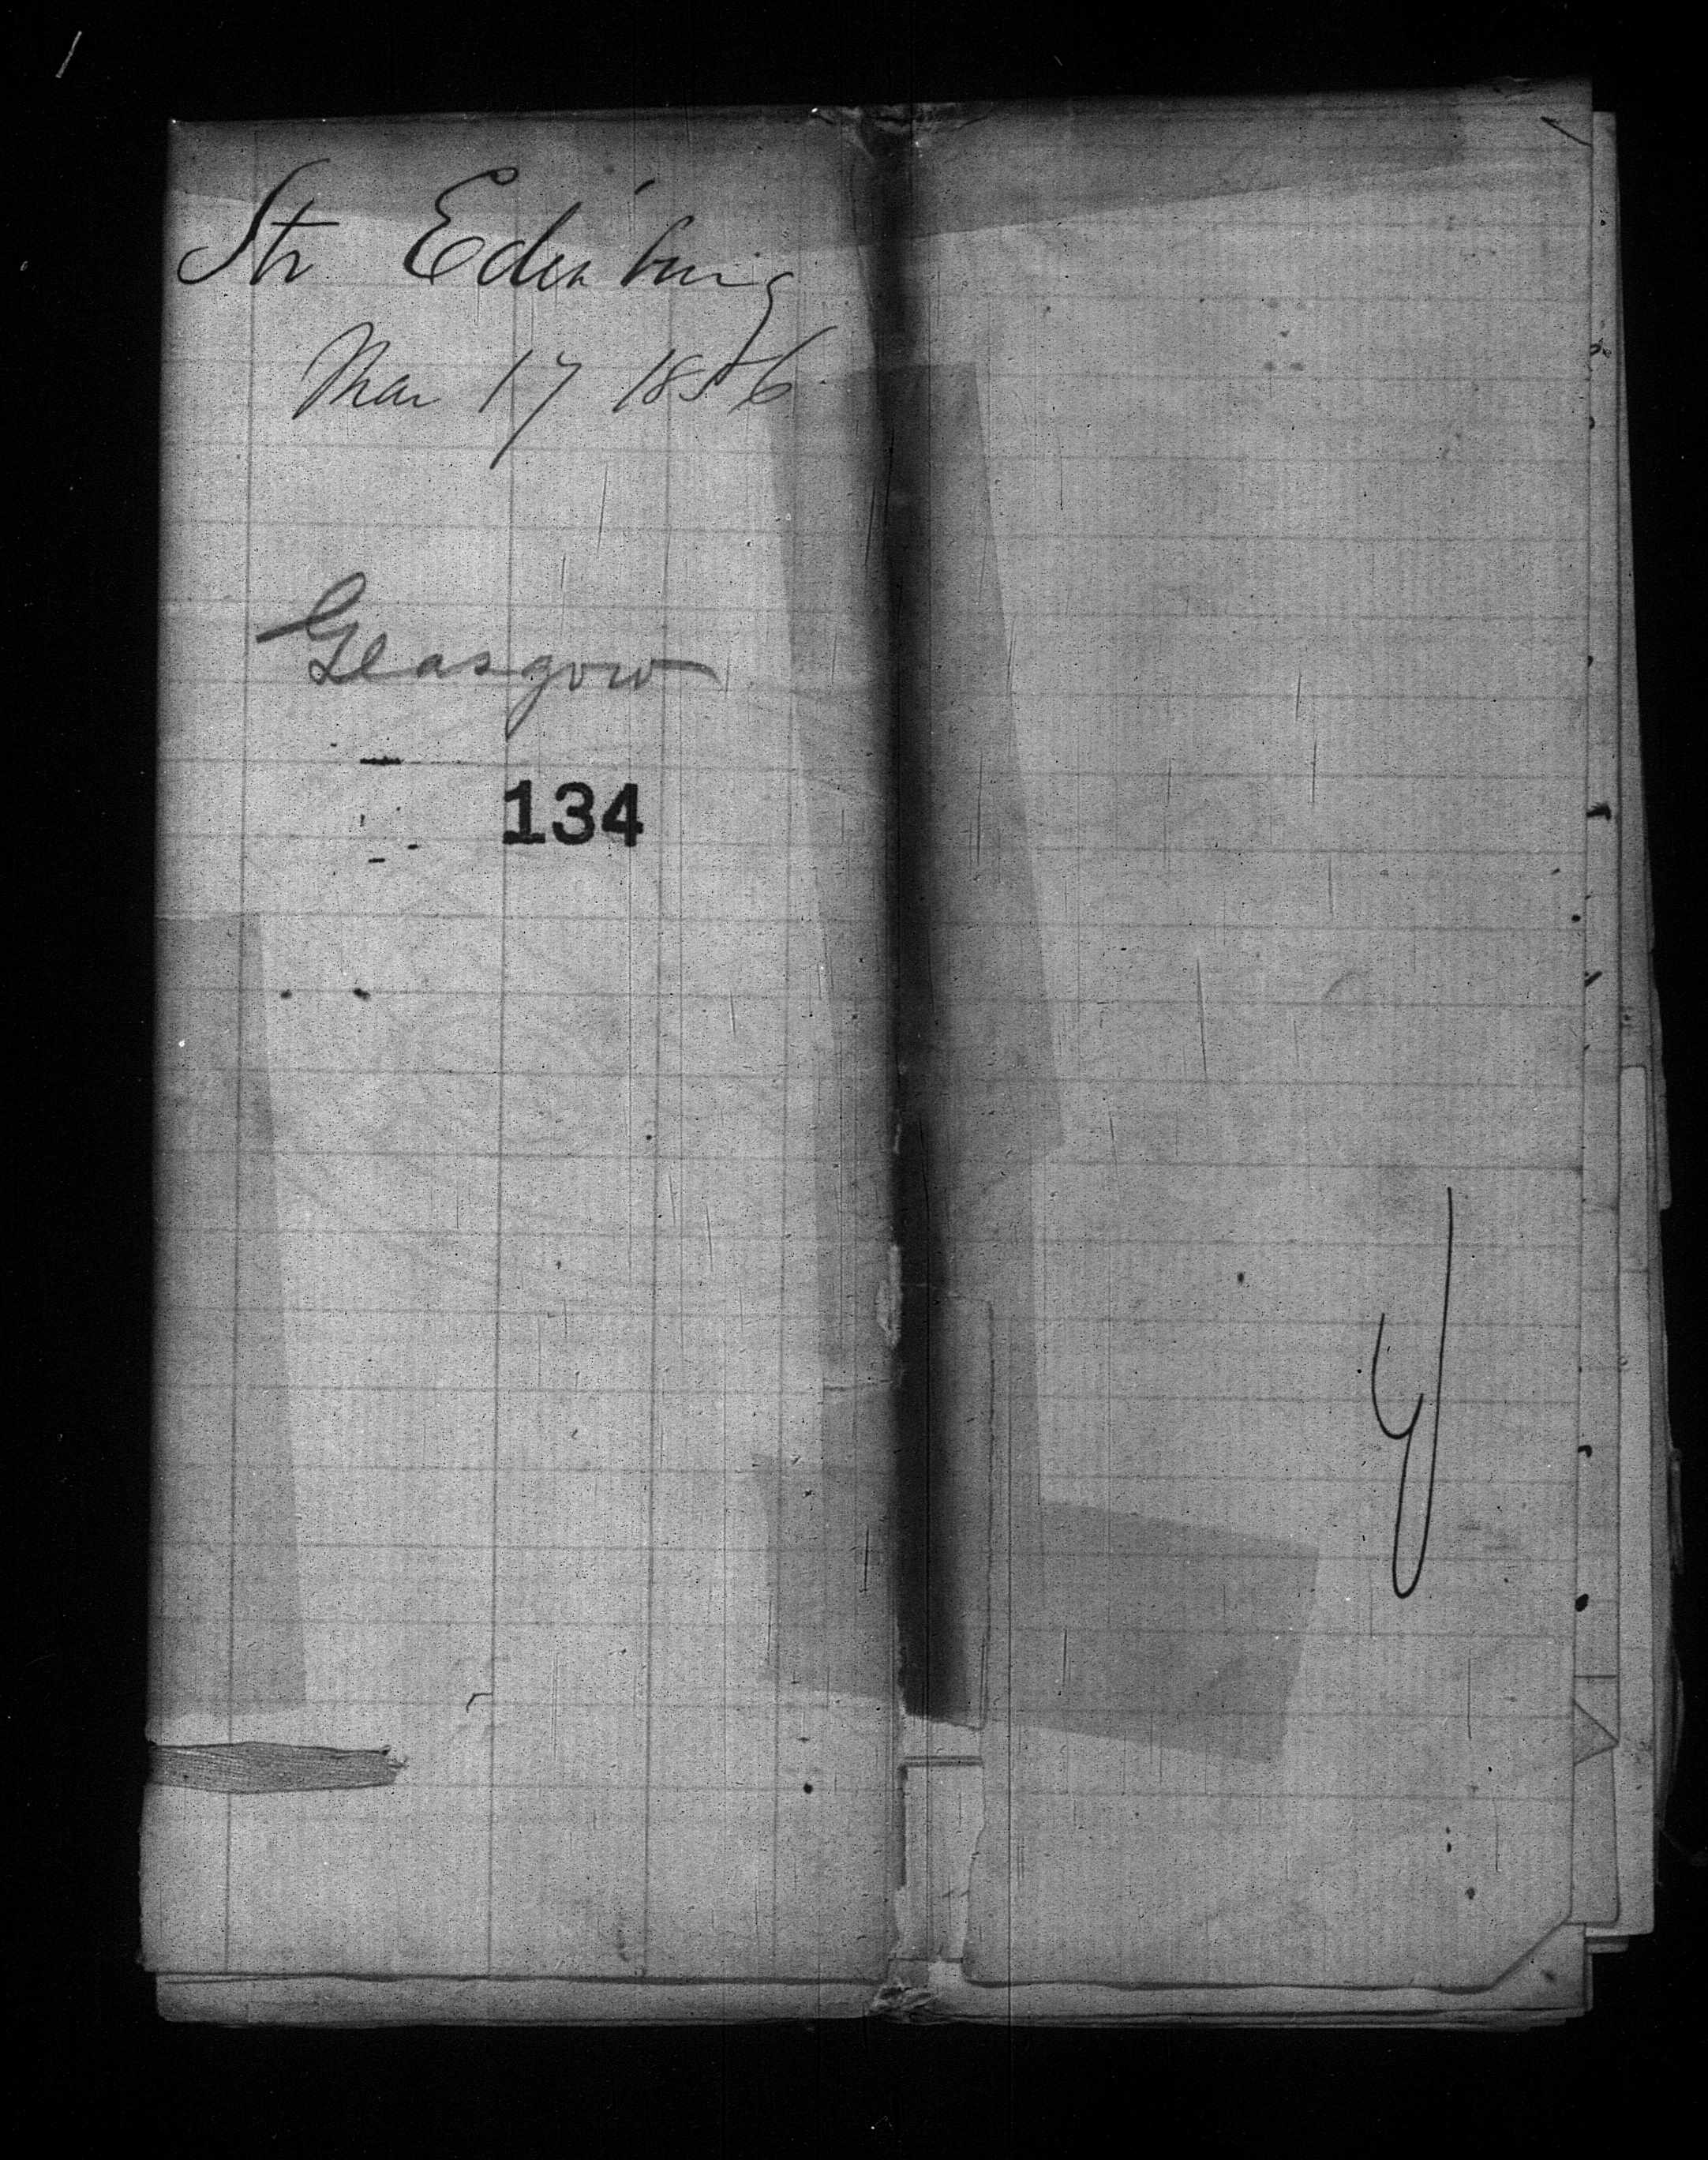 Str Edinburg
Mar 17 1856
Glasgow
134